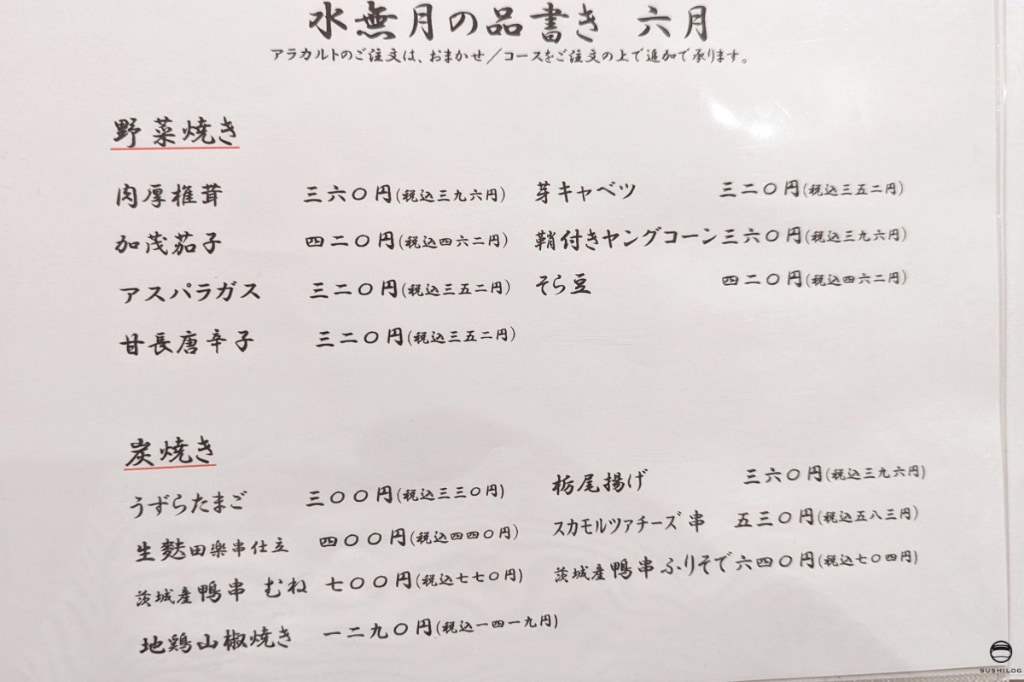 水無月の品書き 六月
アラカルトのご注文は、おまかせ／コースをご注文の上で追加で承ります。
野菜焼き
肉厚椎茸 三六〇円(税込三九六円)
加茂茄子 四二〇円(税込四六二円)
アスパラガス 三二〇円(税込三五二円)
甘長唐辛子 三二〇円(税込三五二円)
芽キャベツ 三二〇円(税込三五二円)
鞘付きヤングコーン 三六〇円(税込三九六円)
そら豆 四二〇円(税込四六二円)
炭焼き
うずらたまご 三〇〇円(税込三三〇円)
生麩田楽串仕立 四〇〇円(税込四四〇円)
茨城産鴨串 むね 七〇〇円(税込七七〇円)
地鶏山椒焼き 一二九〇円(税込一四一九円)
栃尾揚げ 三六〇円(税込三九六円)
スカモルツァチーズ串 五三〇円(税込五八三円)
茨城産鴨串ふりそで 六四〇円(税込七〇四円)
SUSHILOG